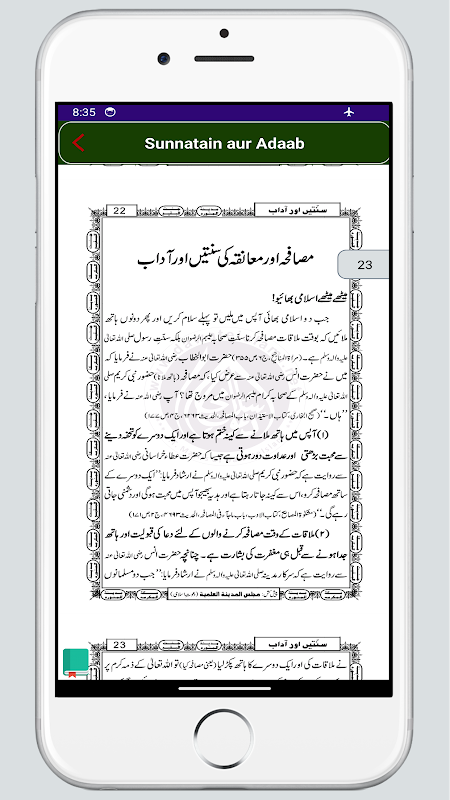 8:35
Sunnatain aur Adaab
22
سنّتیں اور آداب
مصافحہ اور معانقہ کی سنتیں اور آداب
23
میٹھے میٹھے اسلامی بھائیو!
جب دو اسلامی بھائی آپس میں ملیں تو پہلے سلام کریں اور پھر دونوں ہاتھ
ملائیں کہ بوقت ملاقات مصافحہ کرنا سنت صحابہ علیہم الرضوان بلکہ سنت رسول صلی اللہ تعالٰی
علیہ والہ وسلم ہے۔ (مراۃ المناجیح، ج۶، ص۳۵۵) حضرت ابوالخطاب رضی اللہ تعالٰی عنہ نے فرمایا کہ
میں نے حضرت انس رضی اللہ تعالٰی عنہ سے عرض کیا، کہ مصافحہ (ہاتھ ملانا) حضور نبی کریم صلی
اللہ تعالٰی علیہ والہ وسلم کے صحابہ کرام علیہم الرضوان میں مروج تھا؟ آپ رضی اللہ تعالٰی عنہ نے فرمایا،
’’ہاں۔‘‘ (صحیح البخاری، کتاب الاستیذان، باب المصافحہ، الحدیث ۶۲۶۳، ج۴، ص۱۷۷)
(۱) آپس میں ہاتھ ملانے سے کینہ ختم ہوتا ہے اور ایک دوسرے کو تحفہ دینے
سے محبت بڑھتی اور عداوت دور ہوتی ہے جیسا کہ حضرت عطاء خراسانی رضی اللہ تعالٰی عنہ
سے روایت ہے کہ حضور نبی کریم صلی اللہ تعالٰی علیہ والہ وسلم نے ارشاد فرمایا: ’’ایک دوسرے کے
ساتھ مصافحہ کرو، اس سے کینہ جاتا رہتا ہے اور ہدیہ بھیجو آپس میں محبت ہوگی اور دشمنی جاتی
رہے گی۔‘‘ (مشکوۃ المصابیح، کتاب الادب، باب ماجاء فی المصافحہ، الحدیث ۴۶۹۳، ج۳، ص۱۷۱)
(۲) ملاقات کے وقت مصافحہ کرنے والوں کے لئے دعا کی قبولیت اور ہاتھ
جدا ہونے سے قبل ہی مغفرت کی بشارت ہے۔ چنانچہ حضرت انس رضی اللہ تعالٰی عنہ
سے روایت ہے کہ سرکار مدینہ صلی اللہ تعالٰی علیہ والہ وسلم نے ارشاد فرمایا: ’’جب دو مسلمانوں
پیش کش: مجلس المدینة العلمیة (دعوت اسلامی)
23
سنّتیں اور آداب
نے ملاقات کی اور ایک دوسرے کا ہاتھ پکڑ لیا (یعنی مصافحہ کیا) تو اللہ تعالٰی کے ذمہ کرم پر